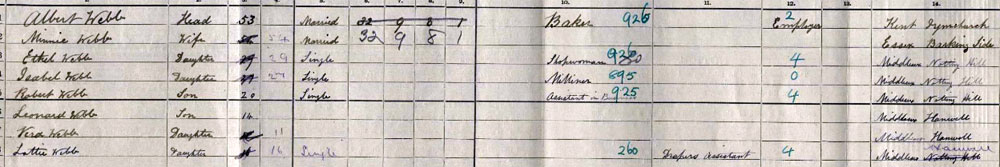 10. 11. 12. 13. 14.
1 Albert Webb Head 53 Married 32 9 8 1 Baker 926 2 Employer Kent Dymchurch
2 Minnie Webb Wife 54 Married 32 9 8 1 Essex Barking Side
Ethel Webb Daughter 29 Single Shopwoman 926 4 Middlesex Notting Hill
Isabel Webb Daughter 27 Single Milliner 895 0 Middlesex Notting Hill
Robert Webb Son 20 Single Assistant in 925 4 Middlesex Notting Hill
Leonard Webb Son 14 Middlesex Hanwell
Vera Webb Daughter 11 Middlesex Hanwell
Lottie Webb Daughter 16 Single 260 Drapers Assistant 4 Middlesex Notting Hill Hanwell